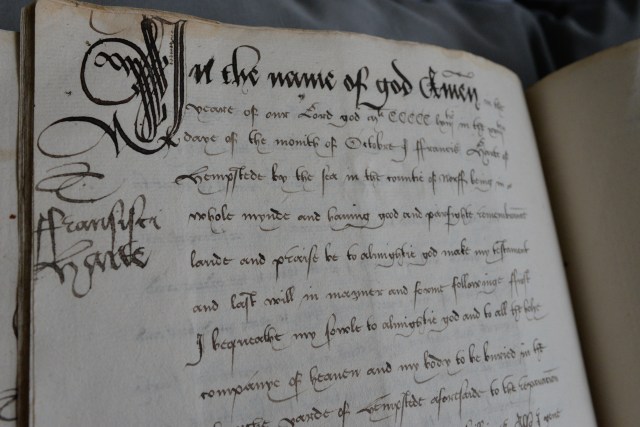 In the name of god Amen in the
yeare of our Lord god mˡ CCCCC in the
daye of the month of October I ffrancis of
hempstede by the sea in the countie of Norff being in
whole mynde and having good and parfighte remembraunce
laude and praise be to almightie god make my testament
and last will in maner and forme followinge ffirst
I bequeathe my sowle to almightie god and to all the holye
companye of heaven and my body to be buried in the
yarde of hempstede aforesaide to the reparation
ffrancisci